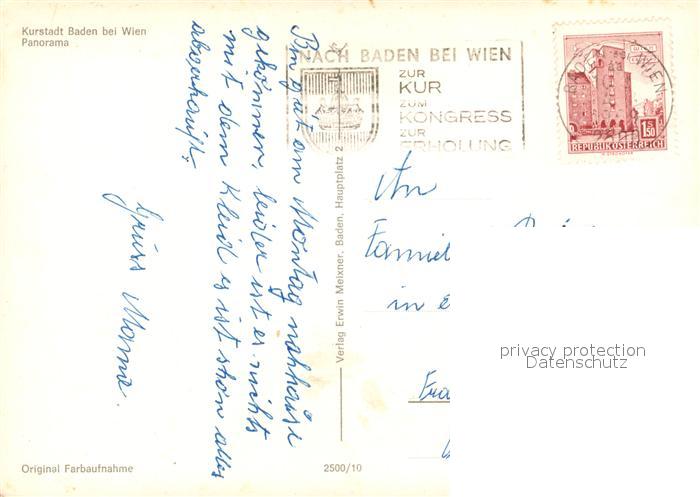 Kurstadt Baden bei Wien
Panorama
NACH BADEN BEI WIEN
ZUR
KUR
ZUM
KONGRESS
ZUR
ERHOLUNG
WIEN
1.50
REPUBLIK ÖSTERREICH
Bin gut am Montag nachhause
gekommen, leider ist es nichts
mit dem Kleid es ist schon alles
abverkauft.
Gruss Mama.
Verlag Erwin Meixner, Baden, Hauptplatz 2
An
Famiel
in
Fra
privacy protection
Datenschutz
Original Farbaufnahme
2500/10